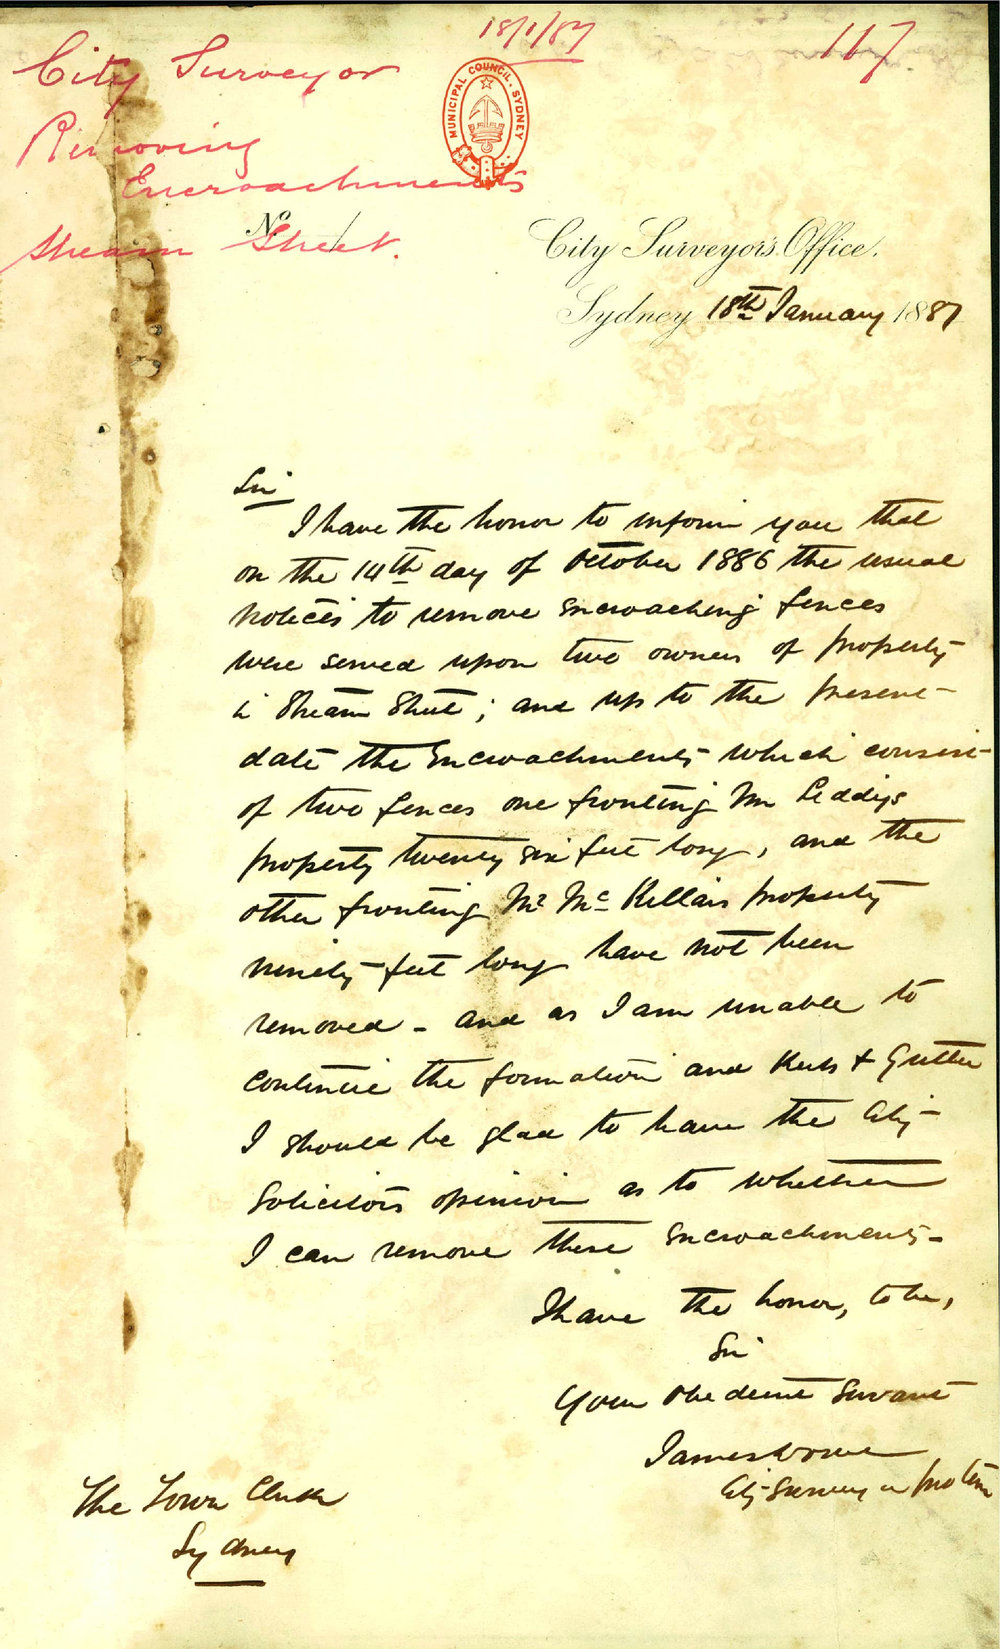 18/1/87
117
City Surveyor
Removing
Encroachments
Shearn Street.
MUNICIPAL COUNCIL. SYDNEY
No. 1
City Surveyor's Office.
Sydney 18th January 1887
Sir
I have the honor to inform you that
on the 14th day of October 1886 the usual
notices to remove encroaching fences
were served upon two owners of property
in Shearn Street; and up to the present
date the encroachments which consist
of two fences one fronting Mr Leddy's
property twenty six feet long, and the
other fronting Mr McKellar's property
ninety feet long have not been
removed - and as I am unable to
continue the formation and Kerb & Gutter
I should be glad to have the City
Solicitors opinion as to whether
I can remove these encroachments -
I have the honor, to be,
Sir
Your Obedient Servant
James
City Surveyor pro tem
The Town Clerk
Sydney